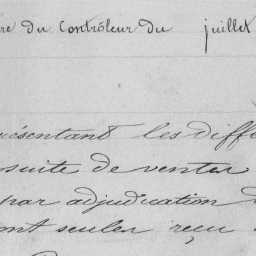 re du Contrôleur du juillet
résentant les diffé
suite de ventes
par adjudication
ont seules reçu